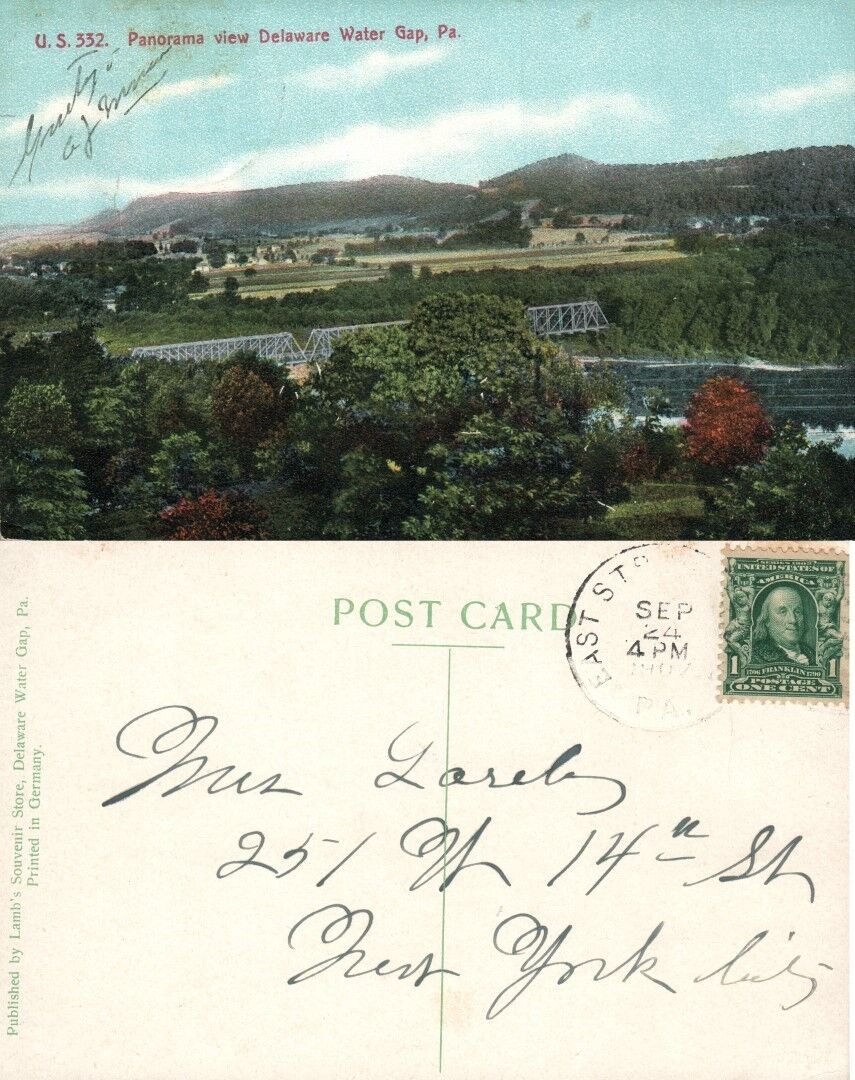 U. S. 332. Panorama view Delaware Water Gap, Pa.
POST CARD
EAST STR
SEP
24
4 PM
1907
PA.
SERIES 1902
UNITED STATES OF
AMERICA
1 1706 FRANKLIN 1790 1
POSTAGE
ONE CENT
Mrs
251 W 14th St
New York City
Published by Lamb's Souvenir Store, Delaware Water Gap, Pa.
Printed in Germany.